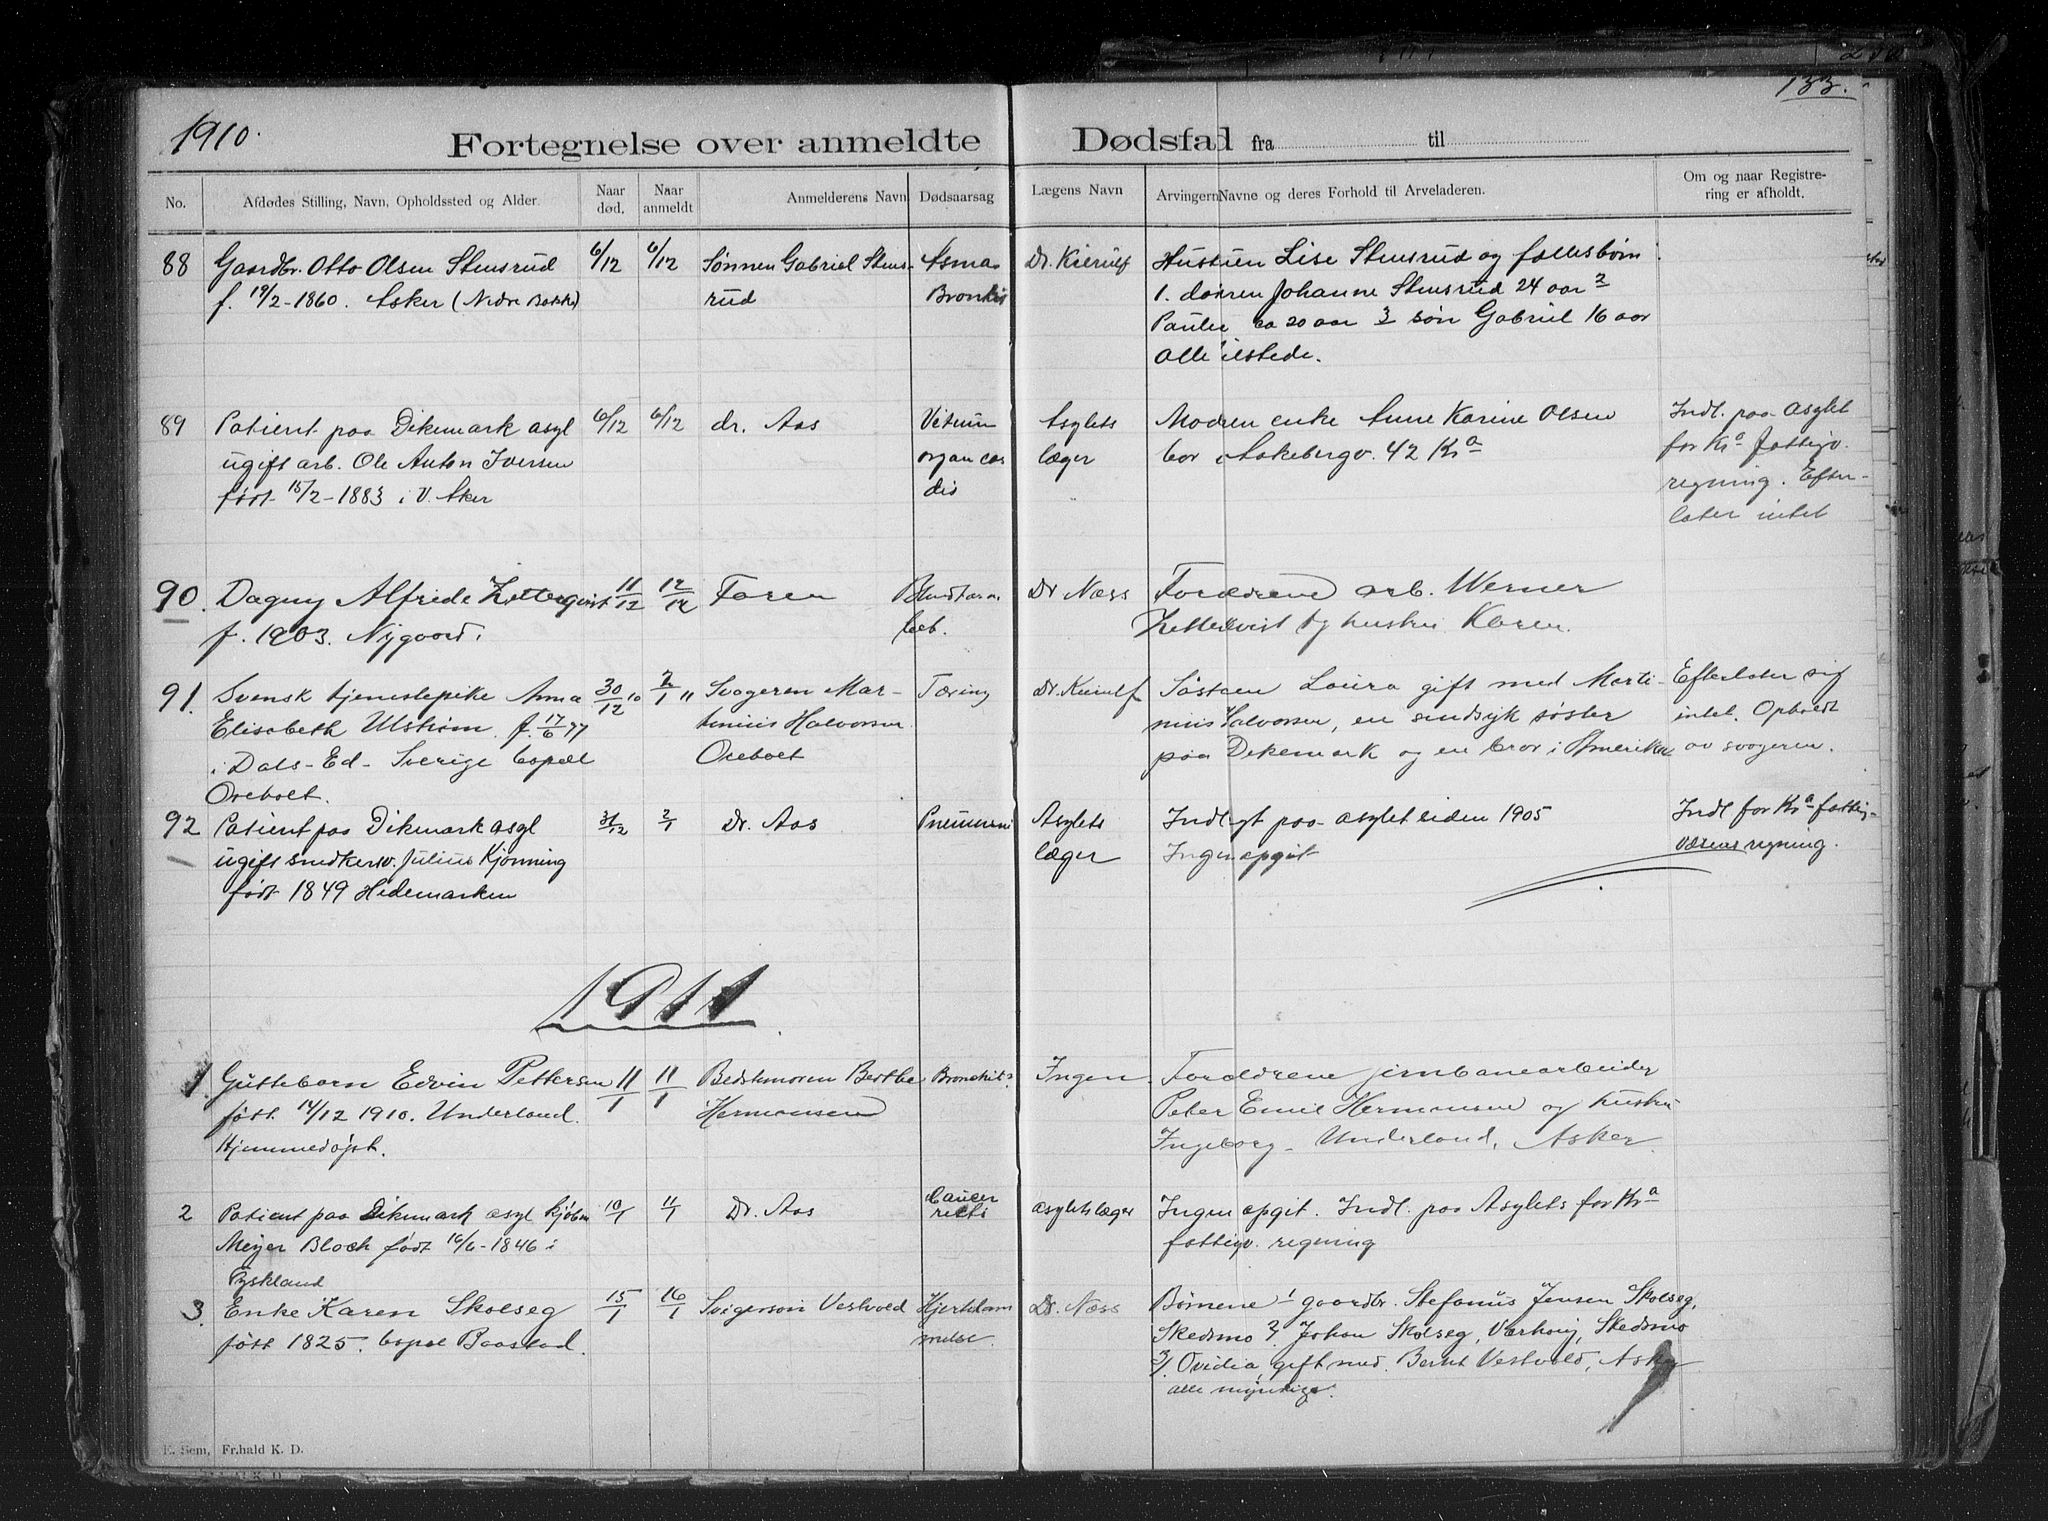 133.
1910.
Fortegnelse over anmeldte Dødsfad fra til
No.
Afdødes Stilling, Navn, Opholdssted og Alder.
Naar død.
Naar anmeldt
Anmelderens Navn
Dødsaarsag
Lægens Navn
Arvingern Navne og deres Forhold til Arveladeren.
Om og naar Registre-
ring er afholdt.
88
Gaardbr. Otto Olsen Stensrud
f. 19/2-1860. Asker (Nedre Bakke)
6/12
6/12
Sønnen Gabriel Stens-
rud
Asma
Bronkit
Dr. Kierulf
Hustruen Lise Stensrud og fællesbørn
1. datren Johanne Stensrud 24 aar 2
Paula ca 20 aar 3 søn Gabriel 16 aar
alle tilstede.
89
Patient paa Dikemark asyl
ugift arb. Ole Anton Iversen
født 15/2-1883 i V. Aker
6/12
6/12
dr. Aas
Vitium
organ cor
dis
Asylets
læger
Modren enke Anne Karine Olsen
bor i Aakebergv. 42 Kra
Indl. paa asylet
for Kra fattigv.
regning. Efter-
later intet
90.
Dagny Alfride Zetterqvist
f. 1903. Nygaard.
11/12
12/12
Faren
Blindtarm
bet.
Dr Næss
Forældrene arb. Werner
Zetterqvist og hustru Karen.
91.
Svensk tjenestepike Anna
Elisabeth Ulstrøm. f. 17/6 77
i Dals-Ed- Sverige bopæl
Orebolt.
30/12 10
2/1 11
Svogeren Mar-
tinius Halvorsen
Orebolt
Tæring
Dr. Kierulf
Søstren Laura gift med Marti-
nius Halvorsen, en sindsyk søster
paa Dikemark og en bror i Amerika
Efterlater sig
intet. Opholdt
av svogeren.
92
Patient paa Dikemark asyl
ugift snedkersv. Julius Kjønning
født 1849 Hedemarken
31/12
2/1
Dr. Aas
Pneumoni
Asylets
læger
Indlagt paa asylet siden 1905
Ingen opgit
Indl for Kra fattig-
væsens regning.
1911
1
Guttebarn Edvin Pettersen
født 14/12 1910. Underland.
Hjemmedøpt.
11/1
11/1
Bedstemoren Berthe
Hermansen
Bronchit
Ingen
Forældrene jernbanearbeider
Peter Emil Hermansen og hustru
Ingeborg - Underland, Asker.
2
Patient paa Dikemark asyl kjøbm
Meyer Bloch født 16/6-1846 i
Tyskland
10/1
11/1
Dr. Aas
Cancer
recti
asylets læger
Ingen opgit. Indl. paa Asylets for Kra
fattigv. regning
3.
Enke Karen Skolseg
født 1825. bopæl Baastad.
15/1
16/1
Svigersøn Vestvold
Hjertelam
melse.
Dr. Næss
Børnene 1 gaardbr. Stefanus Jensen Skolseg,
Skedsmo 2/ Johan Skolseg, Varhoug, Skedsmo
3/. Ovidia, gift med. Bernt Vestvold, Asker
alle myndige.
E. Sem, Fr.hald K. D.